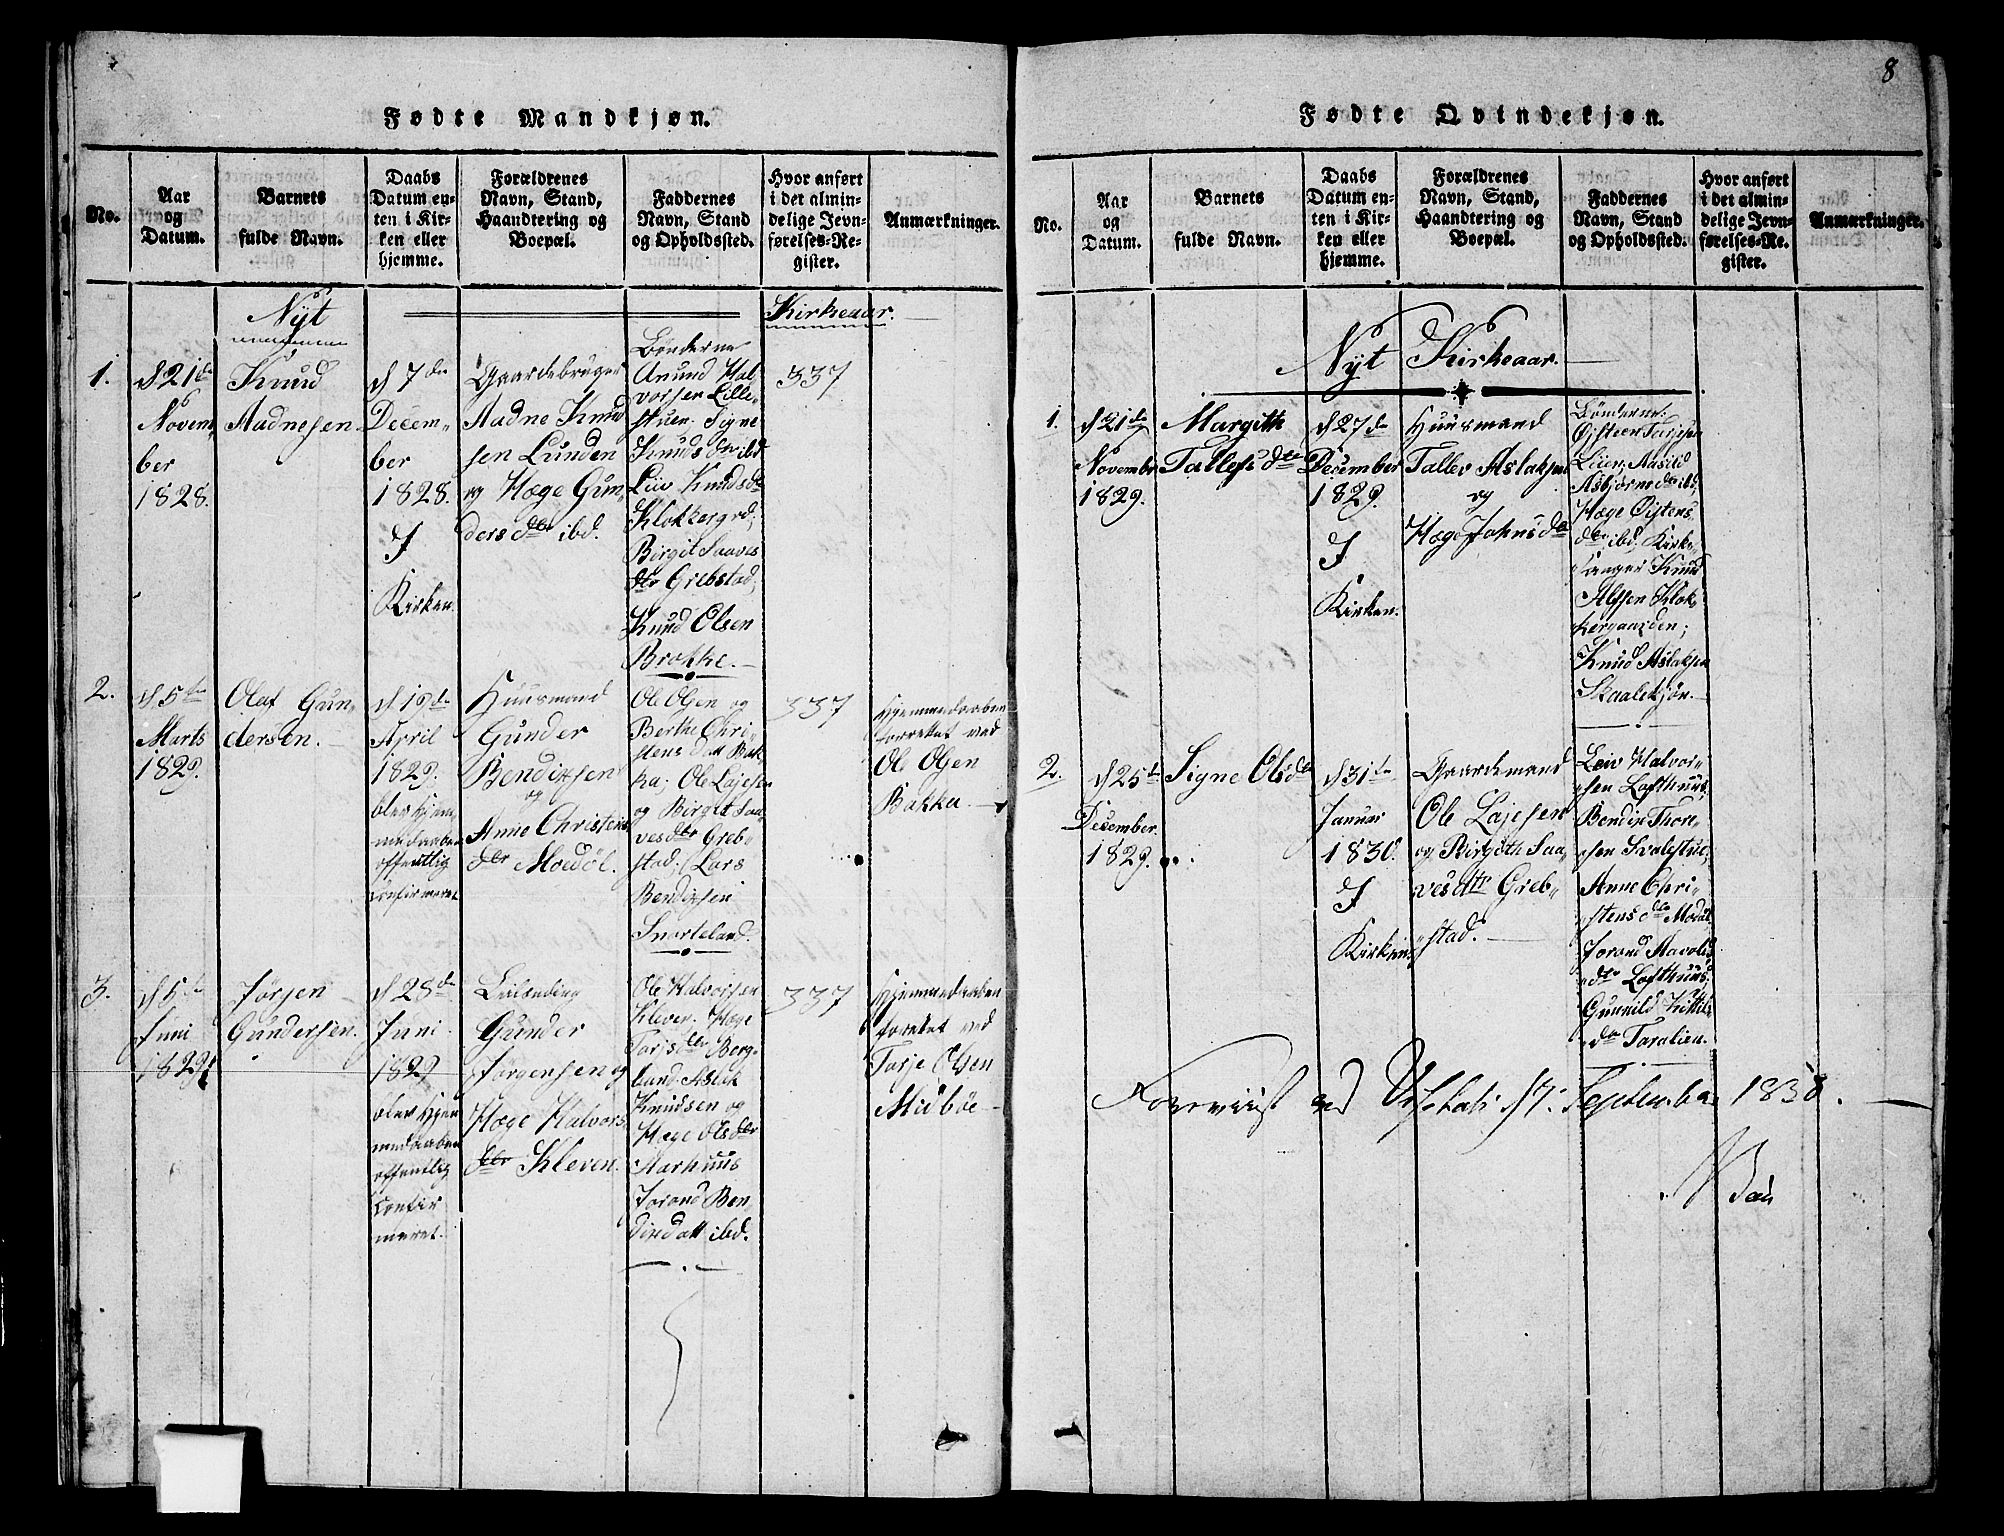 8
Fødte Mandkjøn.
No.
Aar
og
Datum.
Barnets
fulde Navn.
Daabs
Datum en-
ten i Kir-
ken eller
hjemme.
Forældrenes
Navn, Stand,
Haandtering og
Boepæl.
Faddernes
Navn, Stand
og Opholdssted.
Hvor anført
i det almin-
delige Jevn-
førelses-Re-
gister.
Anmærkninger.
Nyt Kirkeaar.
1.
d 21de
Novem-
ber
1828.
Knud
Audnesen
d 7de
Decem-
ber
1828.
I
Kirken.
Gaardebruger
Audne Knud
sen Lunden
og Hæge Gun-
ders dtr ibd.
Bønderne
Anund Hal
vorsen Lille-
stuen. Signe
Knuds dtr ibd
Liv Knudsdtr
Klokkergrd;
Birgit Saaves
dtr Grebstad;
Knud Olsen
Brokke.
337
2.
d 5te
Marts
1829.
Olaf Gun-
dersen.
d 19de
April
1829.
blev hjem-
medaaben
offentlig
confirmeret
Huusmand
Gunder
Bendixsen
og
Anne Christens
dtr Moedøl.
Ole Olsen og
Berthe Chri-
stens datt Bak-
ka; Ole Lajesen
og Birgit Saa-
vesdtr Greb-
stad; Lars
Bendixsen
Snorteland.
337
Hjemmedaaben
forrettet ved
Ole Olsen
Bakka.
3.
d 5te
Juni
1829.
Jørgen
Gundersen.
d 28de
Juni
1829
blev hjem
medaaben
offentlig
confir
meret.
Leilending
Gunder
Jørgensen og
Hæge Halvors
dtr Kleven.
Ole Halvorsen
Kleven. Hæge
Tarjsdtr Berg-
land. Aslak
Knudsen og
Hæge Olsdtr
Aarhuus
Jorand Ben
dixdatt ibd.
337
Hjemmedaaben
forrettet ved
Tarje Olsen
Midbøe
Fødte Qvindekjøn.
No.
Aar
og
Datum.
Barnets
fulde Navn.
Daabs
Datum en-
ten i Kir-
ken eller
hjemme.
Forældrenes
Navn, Stand,
Haandtering og
Boepæl.
Faddernes
Navn, Stand
og Opholdssted.
Hvor anført
i det almin-
delige Jevn-
førelses-Re-
gister.
Anmærkninger.
Nyt Kirkeaar.
1.
d 21de
Novembr
1829.
Margith
Tallefs dtr
d 27de
December
1829.
I
Kirken.
Huusmand
Tallev Aslaksen
og
Hæge Johnsdtr
Bønderne:
Øisteen Tarjesen
Leien, Aasild
Asbjørns dtr ibd;
Hæge Øistens
dtr ibd; Kirke-
sanger Knud
Alfsen Klok-
kergaarden;
Knud Aslaksen
Skaalekjør.
2.
d 25de
December
1829.
Signe Olsdtr
d 31te
Januar
1830.
I
Kirken
Gaardemand
Ole Lajesen
og Birgith Saa-
vesdtr Greb-
stad.
Leiv Halvor-
sen Lofthuus;
Bendix Thore-
sen Svalestue;
Anne Chri-
stens dtr Modøl
Jorand Aavolds
dtr Lofthuus;
Gunnild Kittils
dtr Taralien.
Foreviist ved d 7. September 1830.